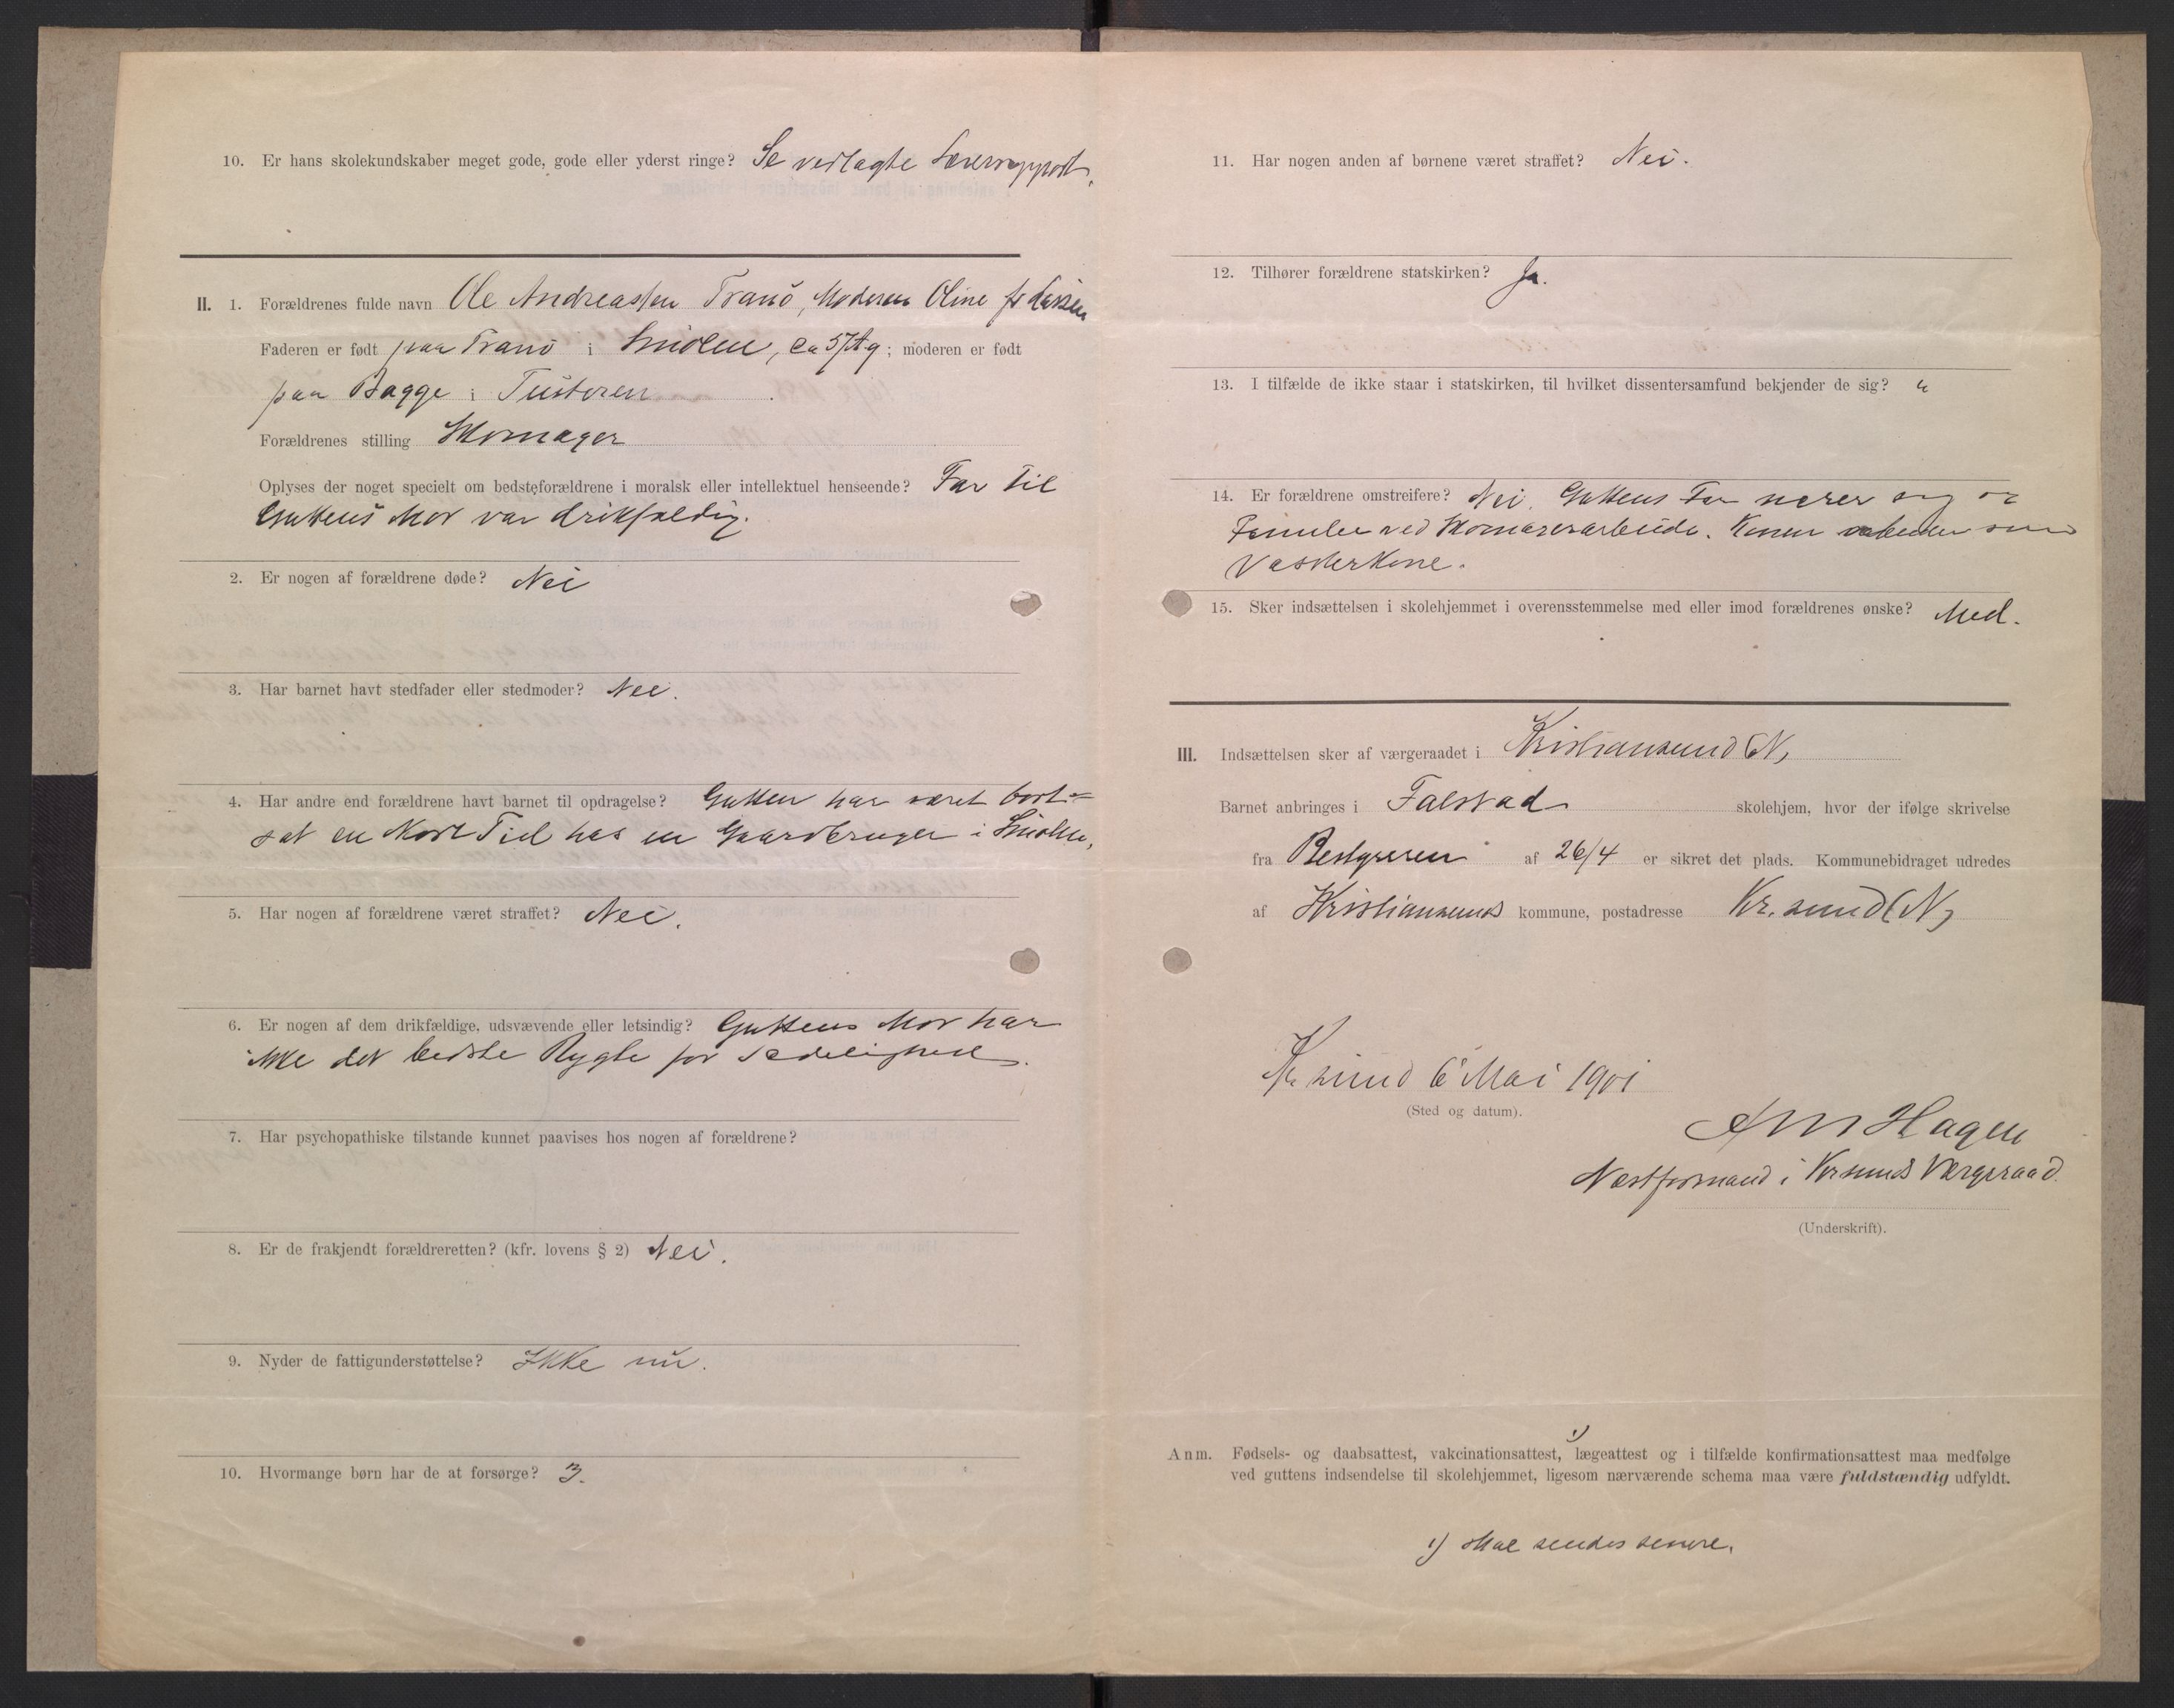 10. Er hans skolekundskaber meget gode, gode eller yderst ringe? Se vedlagte Lærerrapport.
II. 1. Forældrenes fulde navn Ole Andreassen Tranö, Moderen Oline f. Larsen
Faderen er født paa Tranö i Smølen, ca 57 Ag; moderen er født
paa Bagge i Tusteren
Forældrenes stilling Skomager
Oplyses der noget specielt om bedsteforældrene i moralsk eller intellektuel henseende? Far til
Guttens Mor var drikfældig.
2. Er nogen af forældrene døde? Nei
3. Har barnet havt stedfader eller stedmoder? Nei.
4. Har andre end forældrene havt barnet til opdragelse? Gutten har været bort=
sat en kort Tid hos en Gaardbruger i Smølen,
5. Har nogen af forældrene været straffet? Nei.
6. Er nogen af dem drikfældige, udsvævende eller letsindig? Guttens Mor har
ikke det bedste Rygte for Sædelighed.
7. Har psychopathiske tilstande kunnet paavises hos nogen af forældrene?
8. Er de frakjendt forældreretten? (kfr. lovens § 2) Nei.
9. Nyder de fattigunderstøttelse? Ikke nu.
10. Hvormange børn har de at forsørge? 3.
11. Har nogen anden af børnene været straffet? Nei.
12. Tilhører forældrene statskirken? Ja.
13. I tilfælde de ikke staar i statskirken, til hvilket dissentersamfund bekjender de sig? "
14. Er forældrene omstreifere? Nei. Guttens Far nærer sig og
Familie ved Skomagerarbeide. Konen arbeider som
Vaskerkone.
15. Sker indsættelsen i skolehjemmet i overensstemmelse med eller imod forældrenes ønske? Med.
III. Indsættelsen sker af værgeraadet i Kristiansund (N)
Barnet anbringes i Falstad skolehjem, hvor der ifølge skrivelse
fra Bestyreren af 26/4 er sikret det plads. Kommunebidraget udredes
af Kristiansunds kommune, postadresse Kr.sund (N)
Kr sund 6 Mai 1901
(Sted og datum).
A M Hagen
Næstformand i Krsunds Værgeraad.
(Underskrift).
1)
Anm. Fødsels- og daabsattest, vakcinationsattest, lægeattest og i tilfælde konfirmationsattest maa medfølge
ved guttens indsendelse til skolehjemmet, ligesom nærværende schema maa være fuldstændig udfyldt.
1) Skal sendes senere.